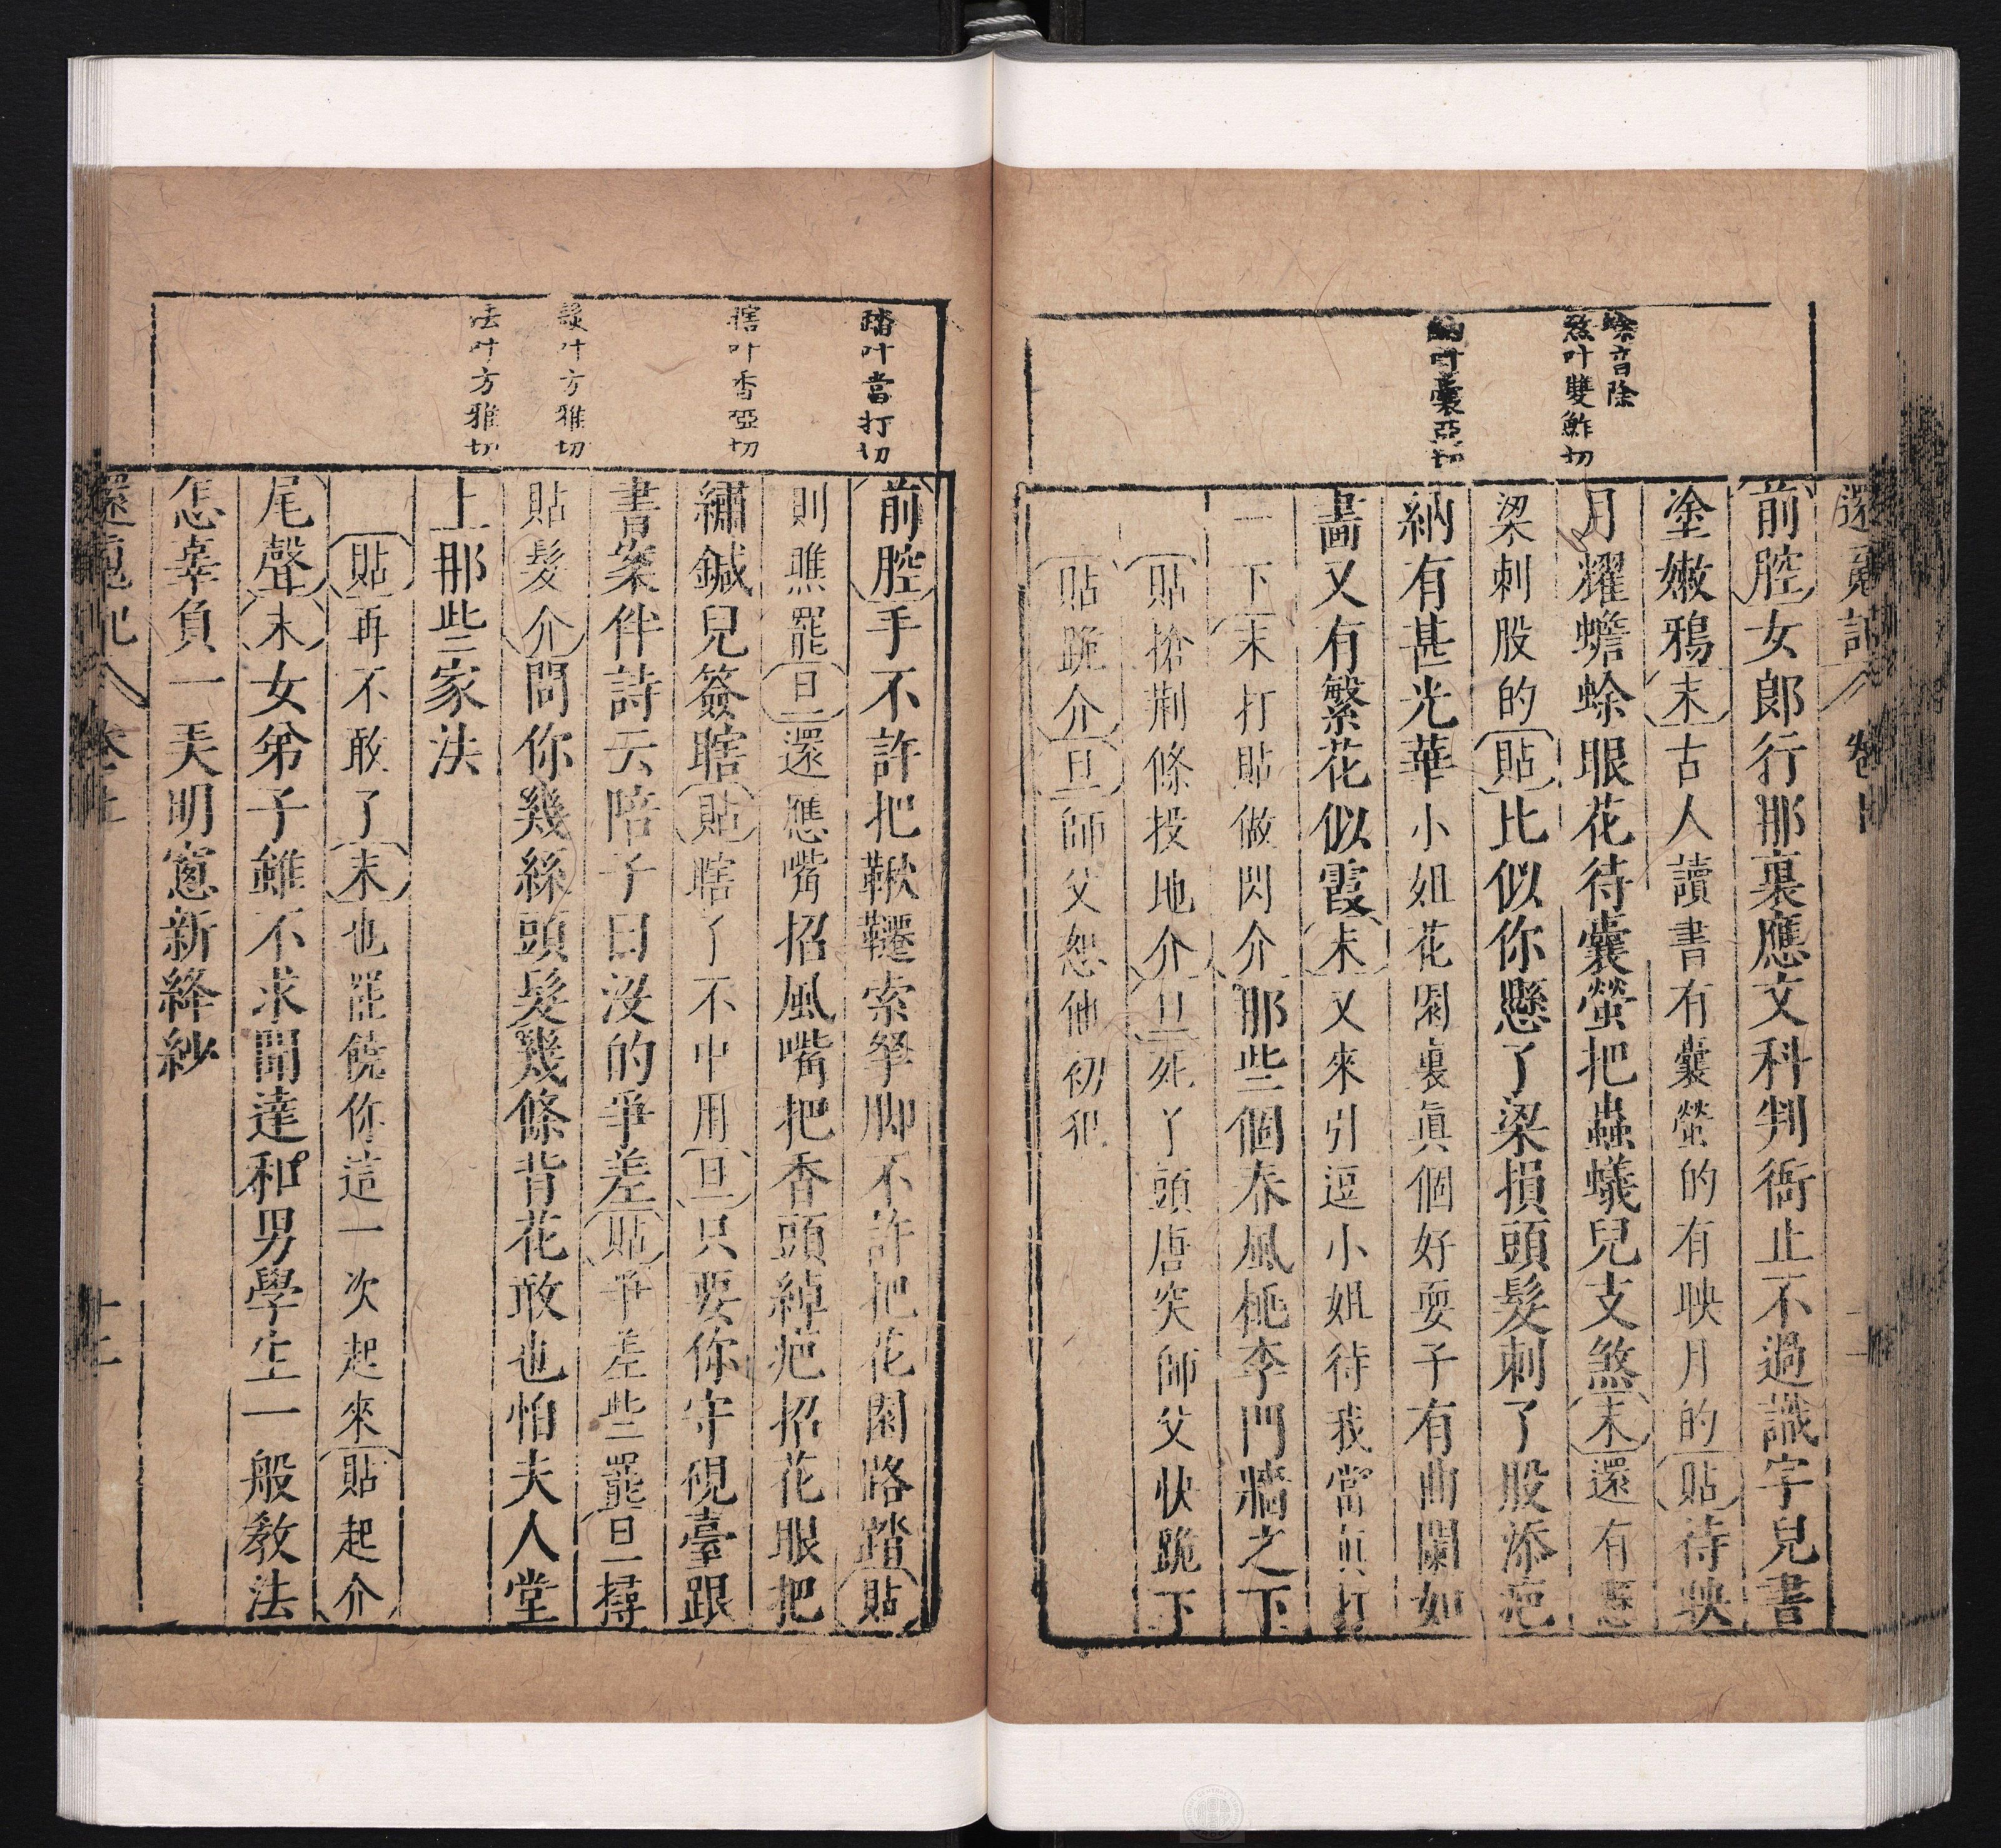 還魂記 卷上
蜍音除
煞叶雙鮓切
納叶囊亞切
前腔女郎行那裏應文科判衙止不過識字兒書
塗嫩鴉末古人讀書有囊螢的有映月的貼待映
月耀蟾蜍眼花待囊螢把蟲蟻兒支煞末還有懸
梁刺股的貼比似你懸了梁損頭髮刺了股添疤
納有甚光華小姐花園裏真個好耍子有曲闌如
畵又有繁花似霞末又來引逗小姐待我當眞打
一下末打貼做閃介那些個春風桃李門牆之下
貼搶荆條投地介旦死丫頭唐突師父快跪下
貼跪介旦師父恕他初犯
踏叶當打切
瞎叶香亞切
髮叶方雅切
法叶方雅切
前腔手不許把鞦韆索拏脚不許把花園路踏貼
則瞧罷旦還應嘴招風嘴把香頭綽疤招花眼把
繡鍼兒簽瞎貼瞎了不中用旦只要你守硯臺跟
書案伴詩云陪子曰沒的爭差貼爭差些罷旦撏
貼髮介問你幾絲頭髮幾條背花敢也怕夫人堂
上那些家法
貼再不敢了末也罷饒你這一次起來貼起介
尾聲末女弟子雖不求聞達和男學生一般敎法
怎辜負一天明窻新絳紗
還魂記 卷上 十二